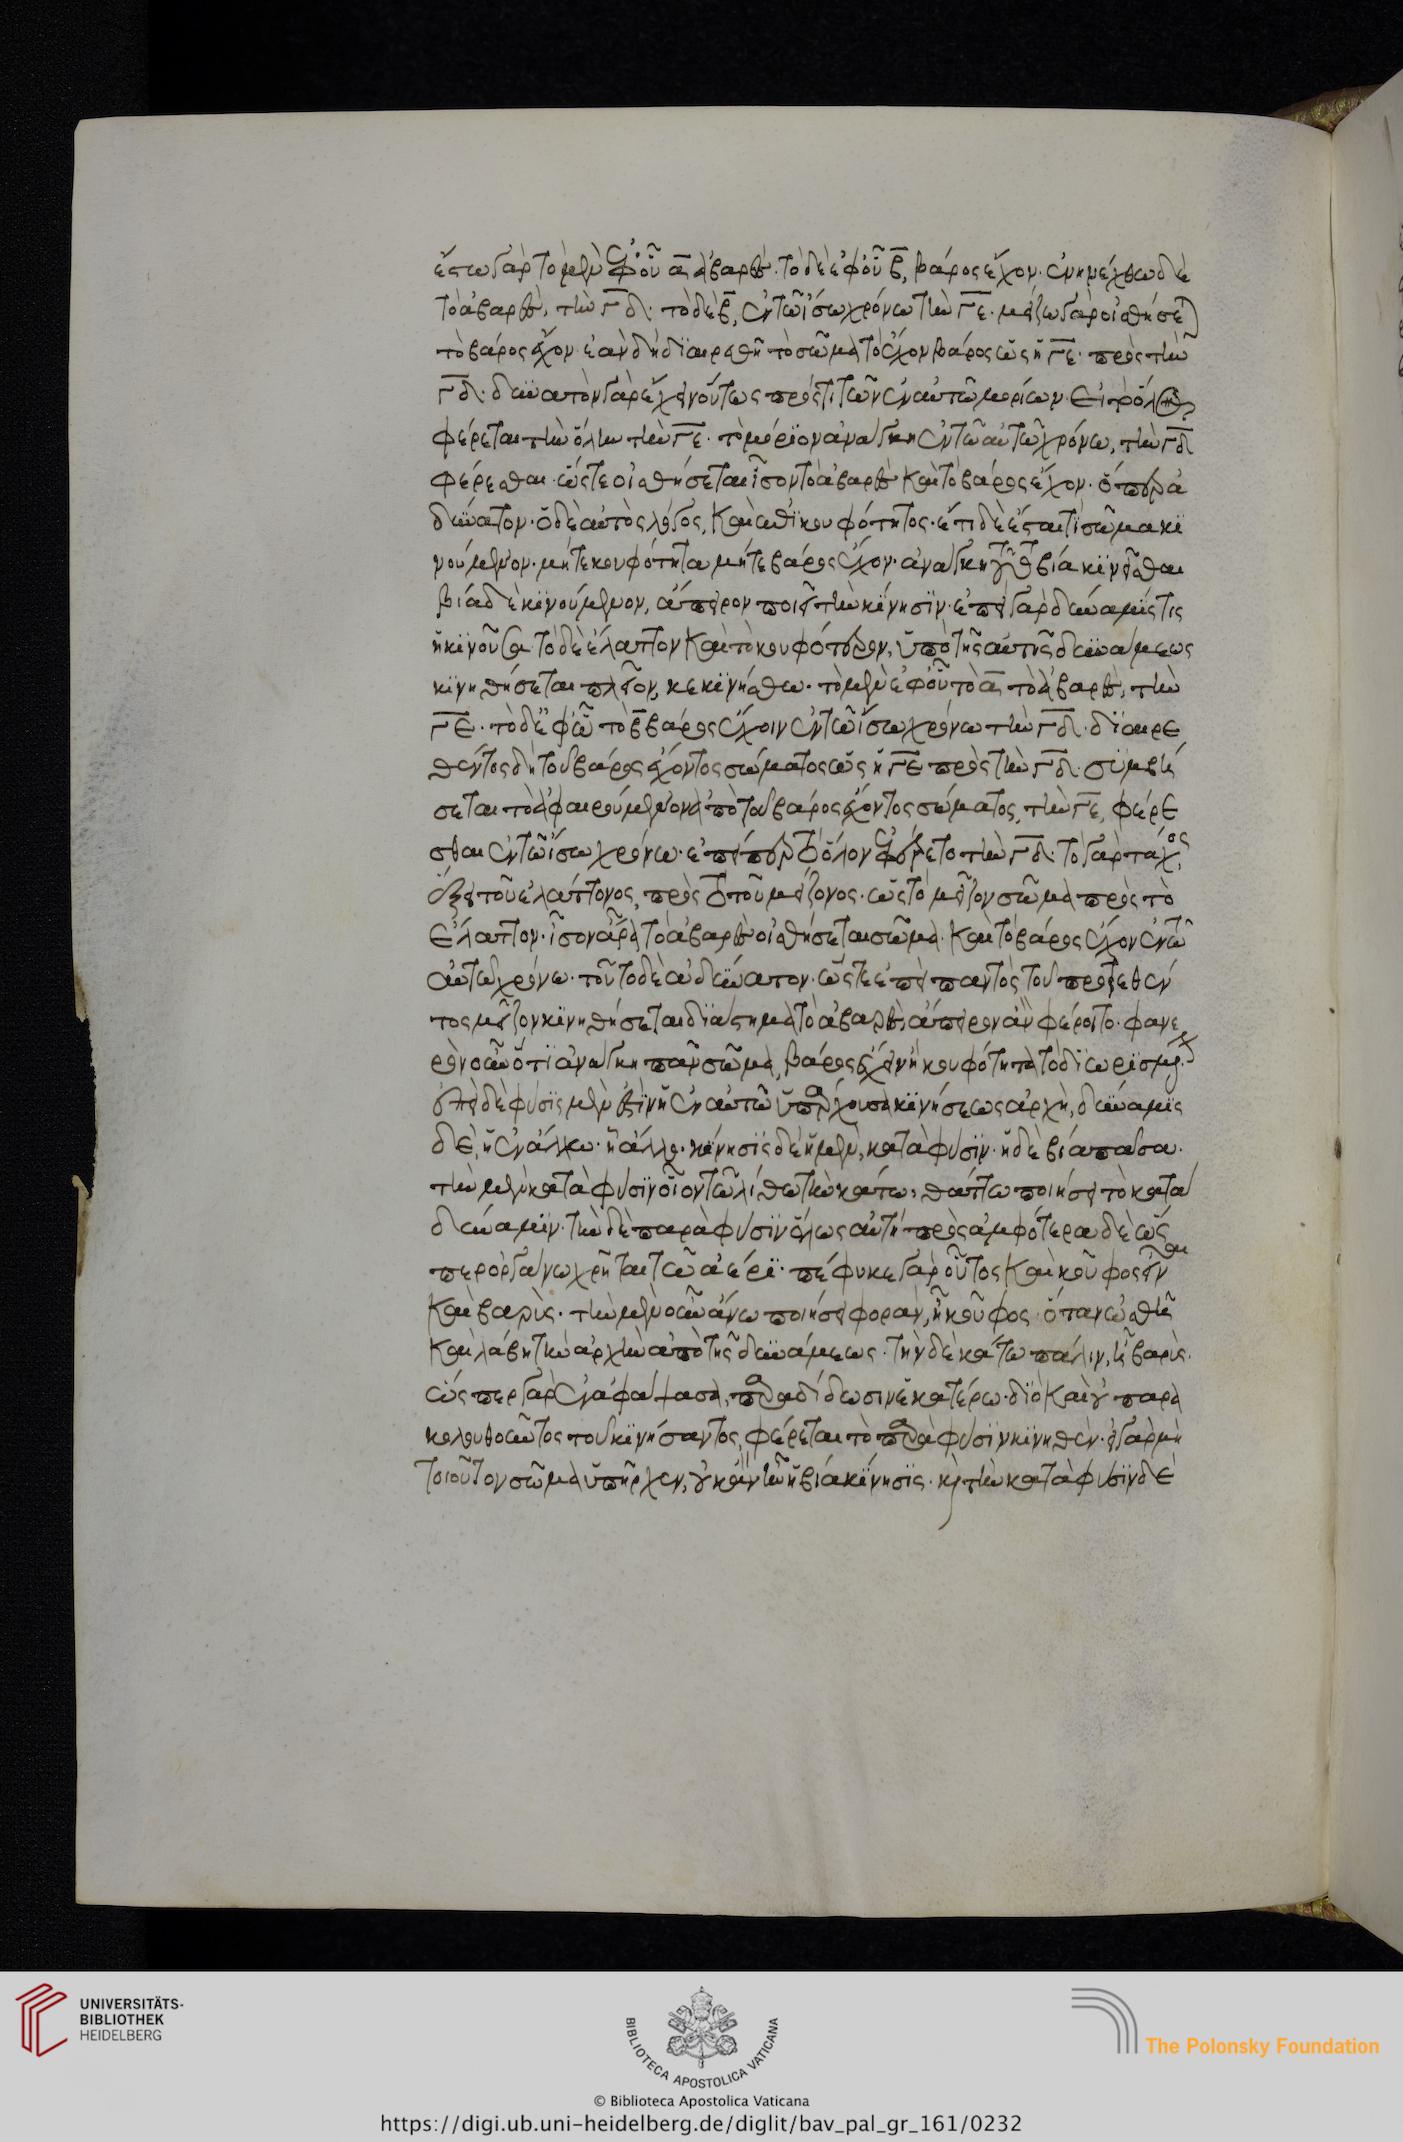 ἔστω γὰρ τὸ μὲν ἐφ' οὗ α ἀβαρὲς. τὸ δὲ ἐφ' οὗ β, βάρος ἔχον. ἐνηνέχθω δὲ
τὸ ἀβαρὲς, τὴν γδ. τὸ δὲ β, ἐν τῶ ἴσω χρόνω τὴν γε. μείζω γὰρ οἰσθήσεται
τὸ βάρος ἔχον. ἐὰν δὴ διαιρεθῆ τὸ σῶμα τὸ ἔχον βάρος ὡς ἡ γε. πρὸς τὴν
γδ. δυνατὸν γὰρ ἔχειν οὕτως πρός τι τῶν ἐν αὐτῶ μορίων. εἰ τὸ ὅλον
φέρεται τὴν ὅλην τὴν γε. τὸ μόριον ἀνάγκη ἐν τῶ αὐτῶ χρόνω, τὴν γδ
φέρεσθαι. ὥστε οἰσθήσεται ἴσον τὸ ἀβαρὲς καὶ τὸ βάρος ἔχον. ὅπερ ἀ
δύνατον. ὁ δὲ αὐτὸς λόγος, καὶ ἐπὶ κουφότητος. ἔτι δὲ ἔσται τὶ σῶμα κι
νούμενον. μήτε κουφότητα μήτε βάρος ἔχον. ἀνάγκη τοῦτο βία κινεῖσθαι
βία δὲ κινούμενον, ἄπειρον ποιεῖ τὴν κίνησιν. ἐπεὶ γὰρ δύναμίς τις
ἡ κινοῦσα. τὸ δὲ ἔλαττον καὶ τὸ κουφότερον, ὑπὸ τῆς αὐτῆς δυνάμεως
κινηθήσεται πλεῖον, κεκινήσθω. τὸ μὲν ἐφ' οὗ τὸ α τὸ ἀβαρὲς, τὴν
γε. τὸ δ' ἐφ' ὧ τὸ β βάρος ἔχον ἐν τῶ ἴσω χρόνω τὴν γδ. διαιρε
θέντος δὴ τοῦ βάρος ἔχοντος σώματος ὡς ἡ γε πρὸς τὴν γδ. συμβή
σεται τὸ ἀφαιρούμενον ἀπὸ τοῦ βάρος ἔχοντος σώματος, τὴν γε, φέρε
σθαι ἐν τῶ ἴσω χρόνω. ἐπείπερ τὸ ὅλον ἐφέρετο τὴν γδ. τὸ γὰρ τάχος
ἕξει τοῦ ἐλάττονος, πρὸς τὸ τοῦ μείζονος. ὡς τὸ μεῖζον σῶμα πρὸς τὸ
ἔλαττον. ἴσον ἄρα τὸ ἀβαρὲς οἰσθήσεται σῶμα. καὶ τὸ βάρος ἔχον ἐν τῶ
αὐτῶ χρόνω. τοῦτο δὲ ἀδύνατον. ὥστε ἐπεὶ παντὸς τοῦ προστεθέν
τος μεῖζον κινηθήσεται διάστημα τὸ ἀβαρὲς, ἄπειρον ἂν φέροιτο. φανε
ρὸν οὖν ὅτι ἀνάγκη πᾶν σῶμα, βάρος ἔχειν ἢ κουφότητα τὸ διωρισμένον.
ἐπεὶ δὲ φύσις μέν ἐστιν ἡ ἐν αὐτῶ ὑπάρχουσα κινήσεως ἀρχὴ, δύναμις
δὲ, ἡ ἐν ἄλλω. ἢ ἄλλο. κίνησις δὲ ἡ μὲν, κατὰ φύσιν. ἡ δὲ βία πᾶσα.
τὴν μὲν κατὰ φύσιν οἷον τῶ λίθω τὴν κάτω, θάττω ποιήσει τὸ κατὰ
δύναμιν. τὴν δὲ παρὰ φύσιν ὅλως αὐτή. πρὸς ἀμφότερα δὲ ὥς
περ ὀργάνω χρῆται τῶ ἀέρι. πέφυκε γὰρ οὗτος καὶ κοῦφος εἶναι
καὶ βαρὺς. τὴν μὲν οὖν ἄνω ποιήσει φορὰν, ἧ κοῦφος. ὅταν ὠσθῆ
καὶ λάβη τὴν ἀρχὴν ἀπὸ τῆς δυνάμεως. τὴν δὲ κάτω πάλιν, ἧ βαρὺς.
ὥσπερ γὰρ ἐναφάψασα, παραδίδωσιν ἑκατέρω. διὸ καὶ οὐ παρα
κολουθοῦντος τοῦ κινήσαντος, φέρεται τὸ παρὰ φύσιν κινηθέν. εἰ γὰρ μὴ
τοιοῦτον σῶμα ὑπῆρχεν, οὐκ ἂν ἦν ἡ βία κίνησις. καὶ τὴν κατὰ φύσιν δὲ
UNIVERSITÄTS-
BIBLIOTHEK
HEIDELBERG
BIBLIOTECA APOSTOLICA VATICANA
© Biblioteca Apostolica Vaticana
The Polonsky Foundation
https://digi.ub.uni-heidelberg.de/diglit/bav_pal_gr_161/0232